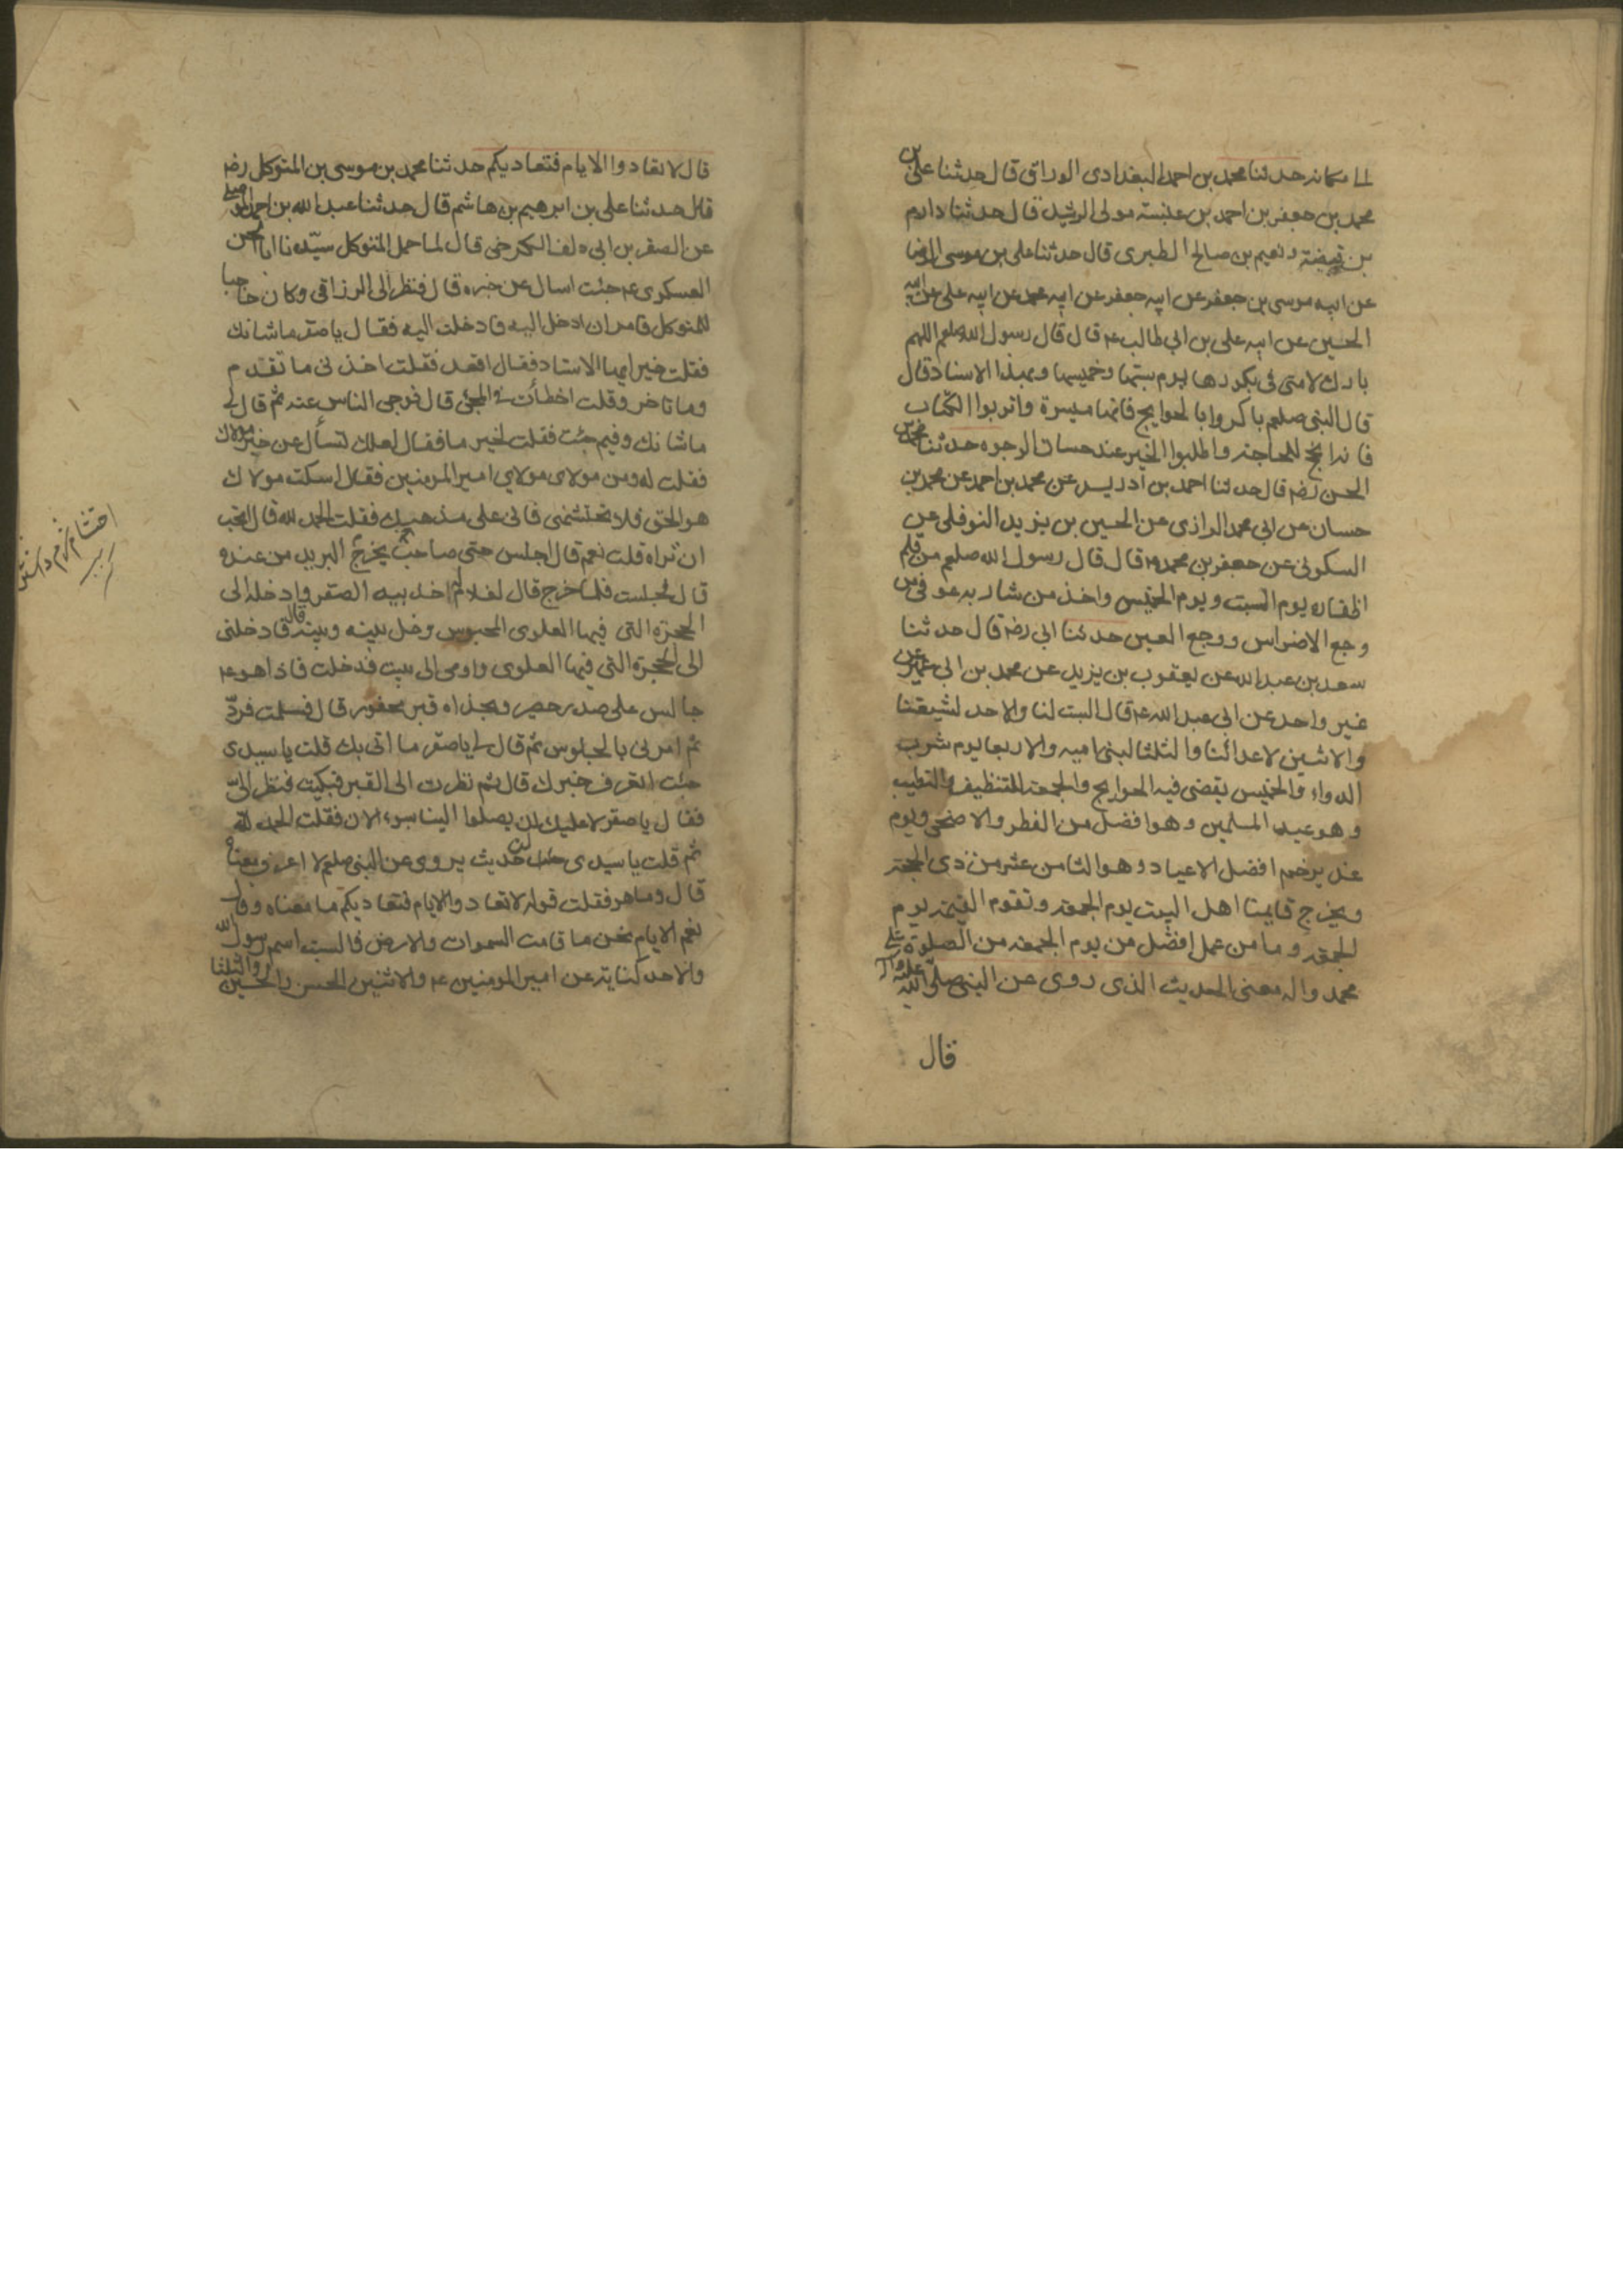 الى مكانه حدثنا محمد بن احمد البغدادى الوراق قال حدثنا على بن
محمد بن جعفر بن احمد بن عنبسة مولى الرشيد قال حدثنا دارم
بن قبيضة ونعيم بن صالح الطبرى قال حدثنا على بن موسى الرضا
عن ابيه موسى بن جعفر عن ابيه جعفر عن ابيه محمد عن ابيه على عن ابيه
الحسين عن ابيه على بن ابى طالب ع م قال قال رسول الله صلعم اللهم
بارك لامتى فى بكورها يوم سبتها وخميسها وبهذا الاسناد قال
قال النبى صلعم باكروا بالحوايج فانها ميسرة واتربوا الكتاب
فانه انجح للحاجة واطلبوا الخير عند حسان الوجوه حدثنا محمد بن
الحسن رضه قال حدثنا احمد بن ادريس عن محمد بن احمد عن محمد بن
حسان عن ابى محمد الرازى عن الحسين بن يزيد النوفلى عن
السكونى عن جعفر بن محمد ع م قال قال رسول الله صلعم من قلم
اظفاره يوم السبت ويوم الخميس واخذ من شاربه عوفى من
وجع الاضراس ووجع العين حدثنا ابى رضه قال حدثنا
سعد بن عبد الله عن يعقوب بن يزيد عن محمد بن ابى عمير عن
غير واحد عن ابى عبد الله ع م قال السبت لنا والاحد لشيعتنا
والاثنين لاعدائنا والثلثا لبنى اميه والاربعا يوم شرب
الدواء والخميس يقضى فيه الحوايج والجمعة للتنظيف والتطيب
وهو عيد المسلمين وهو افضل من الفطر والاضحى ويوم
غدير خم افضل الاعياد وهو الثامن عشر من ذى الحجة
ويخرج قايمنا اهل البيت يوم الجمعة وتقوم القيمة يوم
الجمعة وما من عمل افضل من يوم الجمعة من الصلوة على
محمد واله معنى الحديث الذى روى عن النبى صلى الله عليه واله
قال
قال لا تعادوا الايام فتعاديكم حدثنا محمد بن موسى بن المتوكل رضه
قال حدثنا على بن ابرهيم بن هاشم قال حدثنا عبد الله بن احمد الموصلى
عن الصقر بن ابى دلف الكرخى قال لما حمل المتوكل سيدنا ابا الحسن
العسكرى ع م جئت اسال عن خبره قال فنظر الى الرزاقى وكان حاجبا
للمتوكل فامر ان ادخل اليه فادخلت اليه فقال يا صقر ما شانك
فقلت خير ايها الاستاد فقال اقعد فقلت اخذنى ما تقدم
وما تاخر وقلت اخطأت فى المجئ قال فوجى الناس عنه ثم قال لى
ما شانك وفيم جئت فقلت لخير ما فقال لعلك تسأل عن خبر مولاك
فقلت له ومن مولاى مولاى امير المومنين فقال اسكت مولاك
هو الحق فلا تحتشمنى فانى على مذهبك فقلت الحمد لله قال اتحب
ان تراه قلت نعم قال اجلس حتى يخرج صاحب البريد من عنده
قال فجلست فلما خرج قال لغلام له خذ بيد الصقر وادخله الى
الحجرة التى فيها العلوى المحبوس وخل بينه وبينه قال فادخلنى
الى الحجرة التى فيها العلوى واومى الى بيت فدخلت فاذا هو ع م
جالس على صدر حصير وبحذاه قبر محفور قال فسلمت فرد
ثم امرنى بالجلوس ثم قال لى يا صقر ما اتى بك قلت يا سيدى
جئت اتعرف خبرك قال ثم نظرت الى القبر فبكيت فنظر الى
فقال يا صقر لا عليك لن يصلوا الينا بسوء الان فقلت الحمد لله
ثم قلت يا سيدى حديث يروى عن النبى صلعم لا اعرف معناه
قال وما هو فقلت قوله لا تعادوا الايام فتعاديكم ما معناه وقال
نعم الايام نحن ما قامت السموات والارض فالسبت اسم رسول الله
والاحد كناية عن امير المومنين ع م والاثنين الحسن والحسين والثلثا